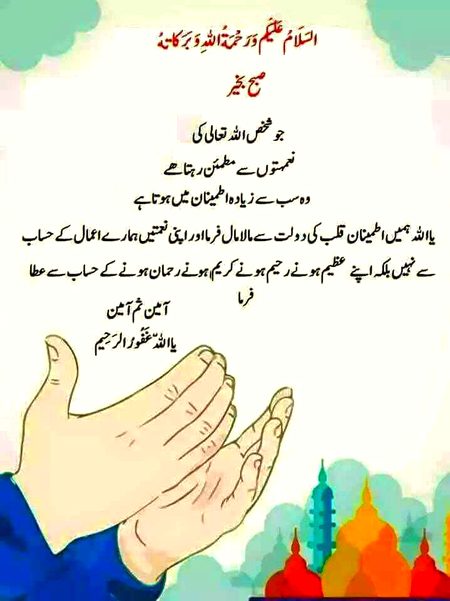 السَلَامُ عَلَيْكُم وَرَحْمَةُ اللهِ وَبَرَكَاتهُ
صبح بخیر
جو شخص اللہ تعالی کی
نعمہتوں سے مطمئن رہتا ھے
وہ سب سے زیادہ اطمینان میں ہوتا ہے
یا اللہ ہمیں اطمینان قلب کی دولت سے مالا مال فرما اور اپنی نعمتیں ہمارے اعمال کے حساب
سے نہیں بلکہ اپنے عظیم ہونے رحیم ہونے کریم ہونے رحمان ہونے کے حساب سے عطا
فرما
آمین ثم آمین
یا اللّٰہ غَفُورُ الرَحِیم